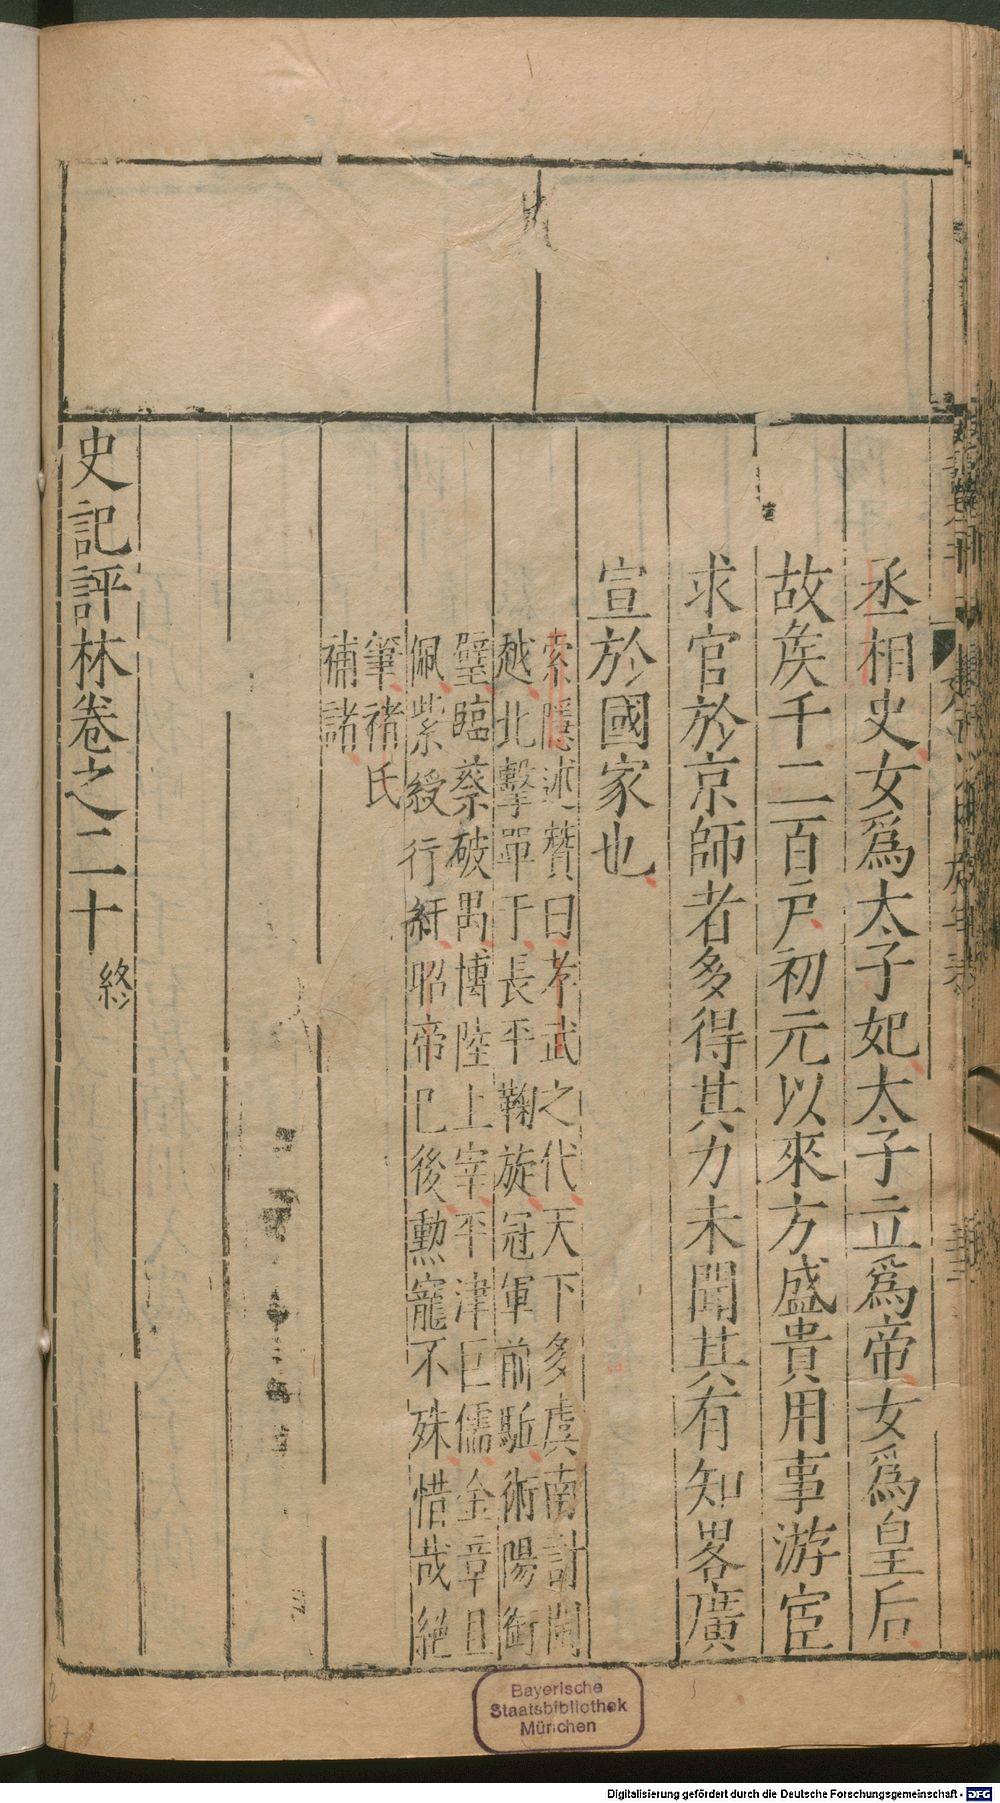 丞相史女爲太子妃太子立爲帝女爲皇后
故矦千二百户初元以來方盛貴用事游宦
求官於京師者多得其力未聞其有知畧廣
宣於國家也
索隱述贊曰孝武之代天下多虞南討閩
越北擊單于長平鞠旋冠軍前駈術陽銜
璧臨蔡破禺博陸上宰平津巨儒金章且
佩紫綬行紆昭帝已後勲寵不殊惜哉絕
筆褚氏
補諸
史記評林卷之二十
終
Bayerische
Staatsbibliothek
München
Digitalisierung gefördert durch die Deutsche Forschungsgemeinschaft - DFG